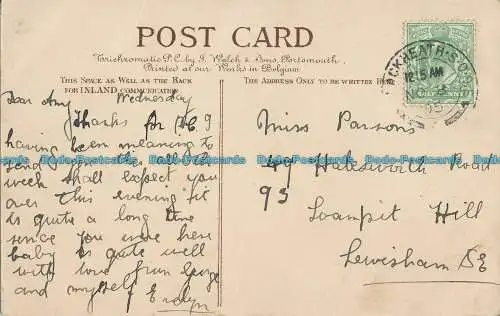 POST CARD
Varichromatic P.C. by J. Welch & Sons, Portsmouth.
Printed at our Works in Belgium
THIS SPACE AS WELL AS THE BACK
FOR INLAND COMMUNICATION
THE ADDRESS ONLY TO BE WRITTEN
HALFPENNY
BLACKHEATH. S.O.
12.15 AM
05
Dear Amy Wednesday
Thanks for
having been meaning to
send you this all the
week shall expect you
over this evening
is quite a long time
since you were here
baby is quite well
with love from George
and myself Evelyn
Miss Parsons
49 Halesworth Road
93
Loampit Hill
Lewisham SE
Dodo-Postcards Dodo-Postcards Dodo-Postcards Dodo-Postcards Dodo-Postcards